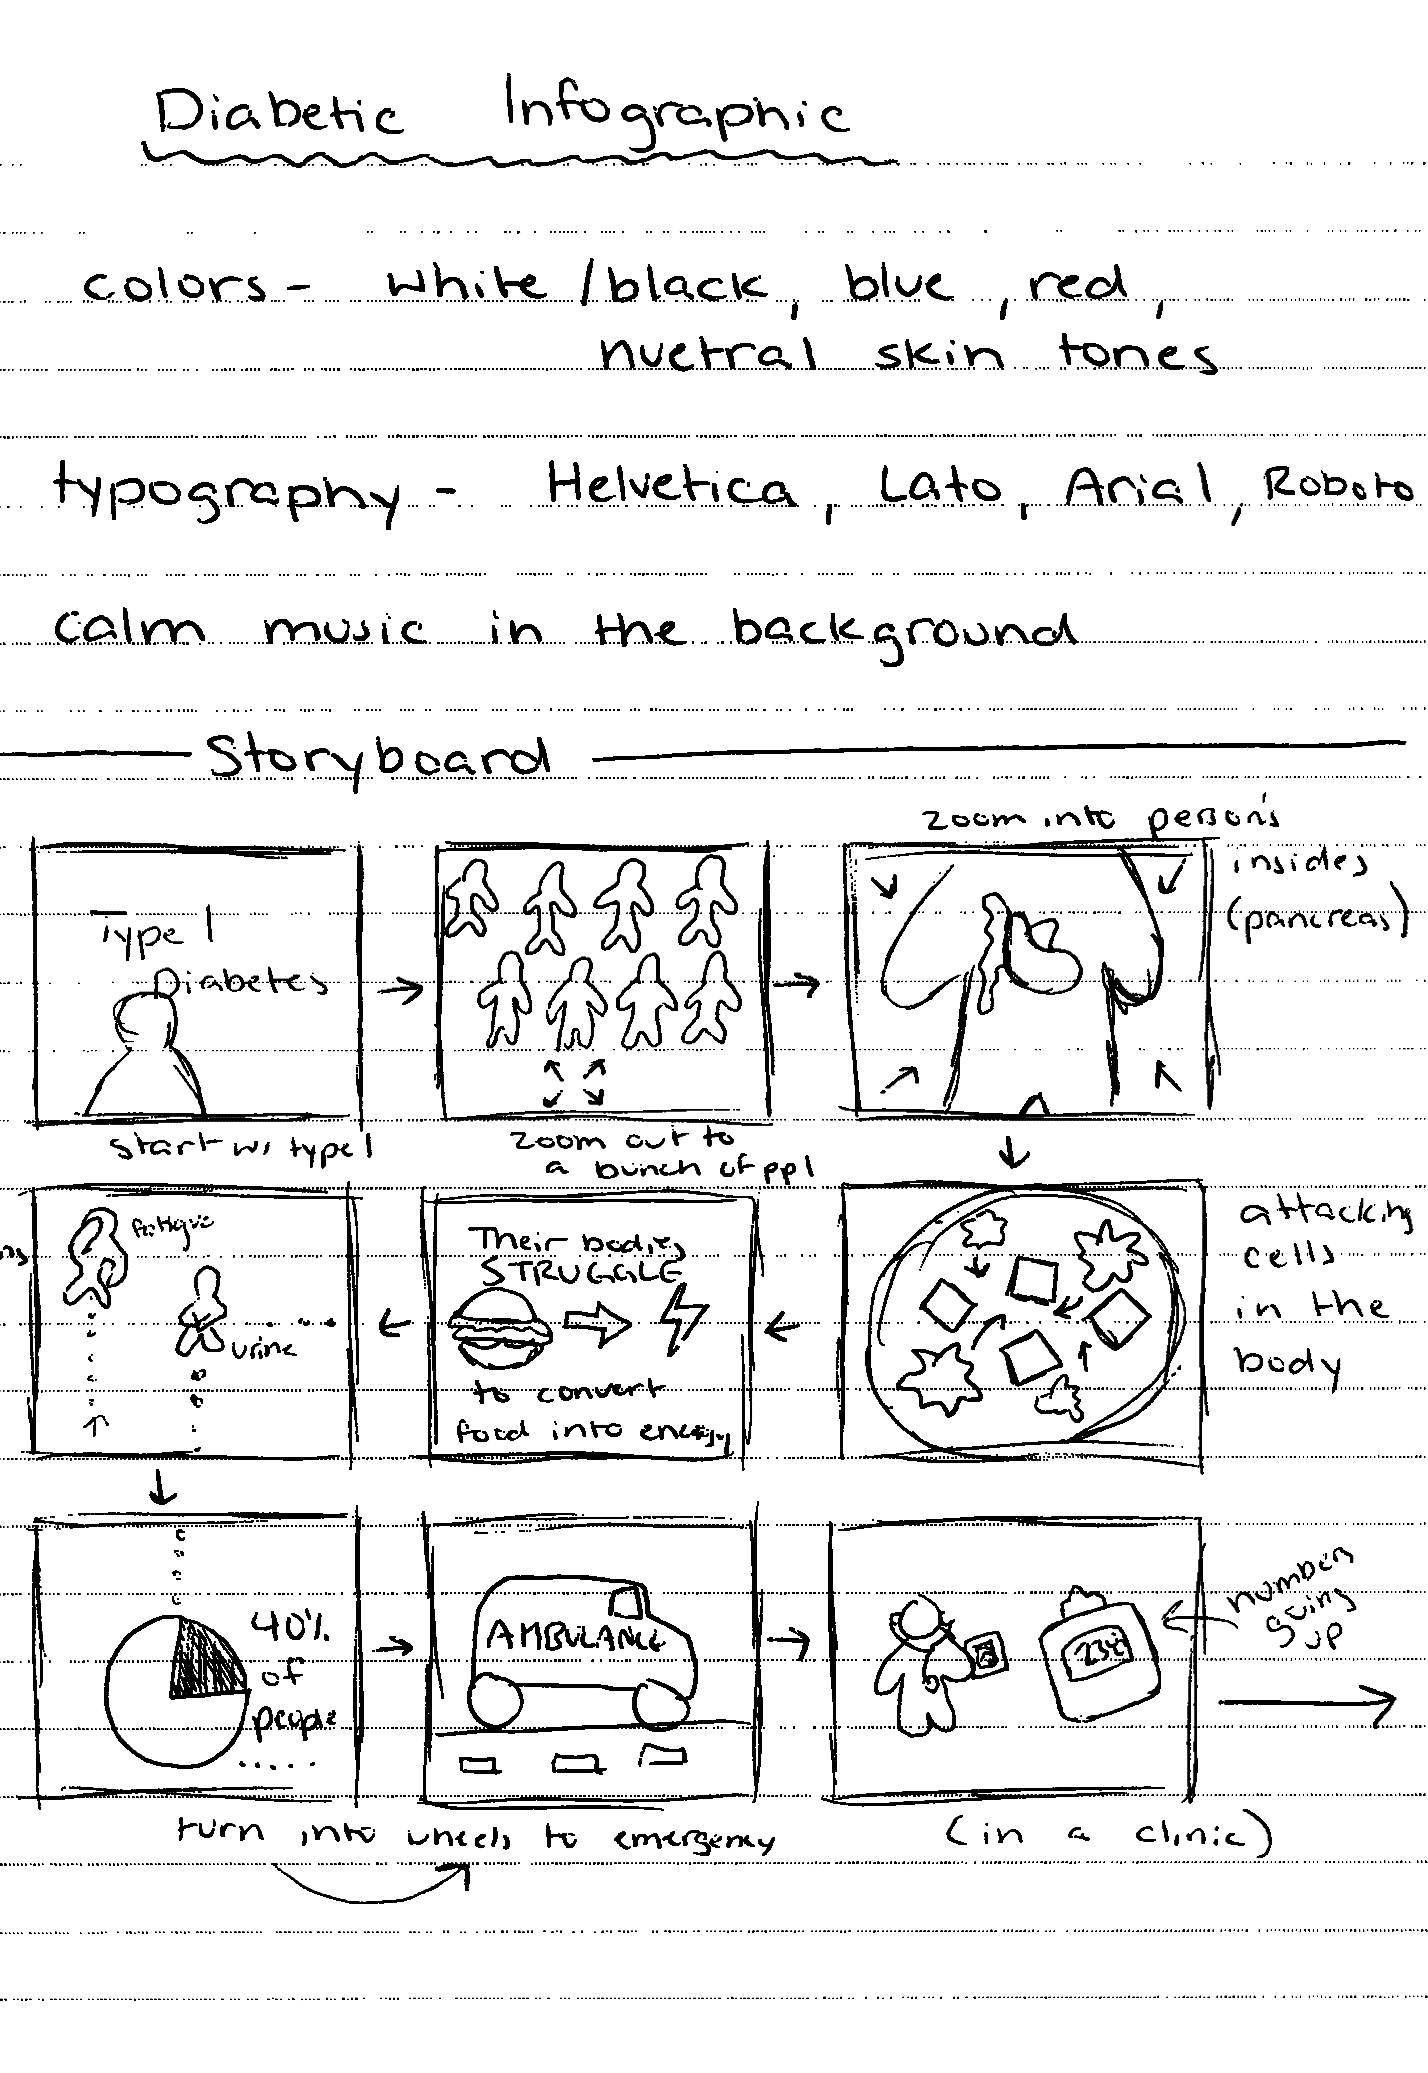 Diabetic Infographic
colors - white/black, blue, red,
nuetral skin tones
typography - Helvetica, Lato, Arial, Roboto
calm music in the background
Storyboard
Type 1
Diabetes
start w/ type 1
zoom out to
a bunch of ppl
zoom into person's
insides
(pancreas)
attacking
cells
in the
body
Their bodies
STRUGGLE
to convert
food into energy
fatigue
urine
40%
of
people
.....
turn into wheels to emergency
AMBULANCE
number
going
up
(in a clinic)